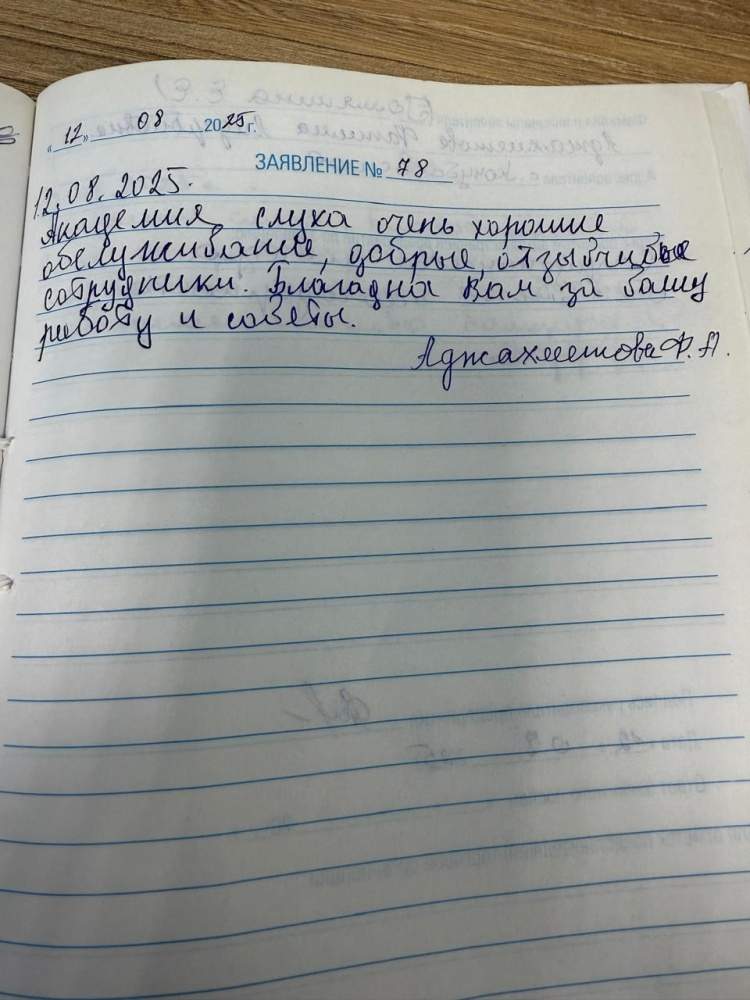 "12" 08 2025 г.
ЗАЯВЛЕНИЕ № 78
12.08.2025.
Академия слуха очень хорошие
обслуживание, добрые, отзывчивые
сотрудники. Благадна Вам за вашу
работу и советы.
Аджахметова Ф. А.